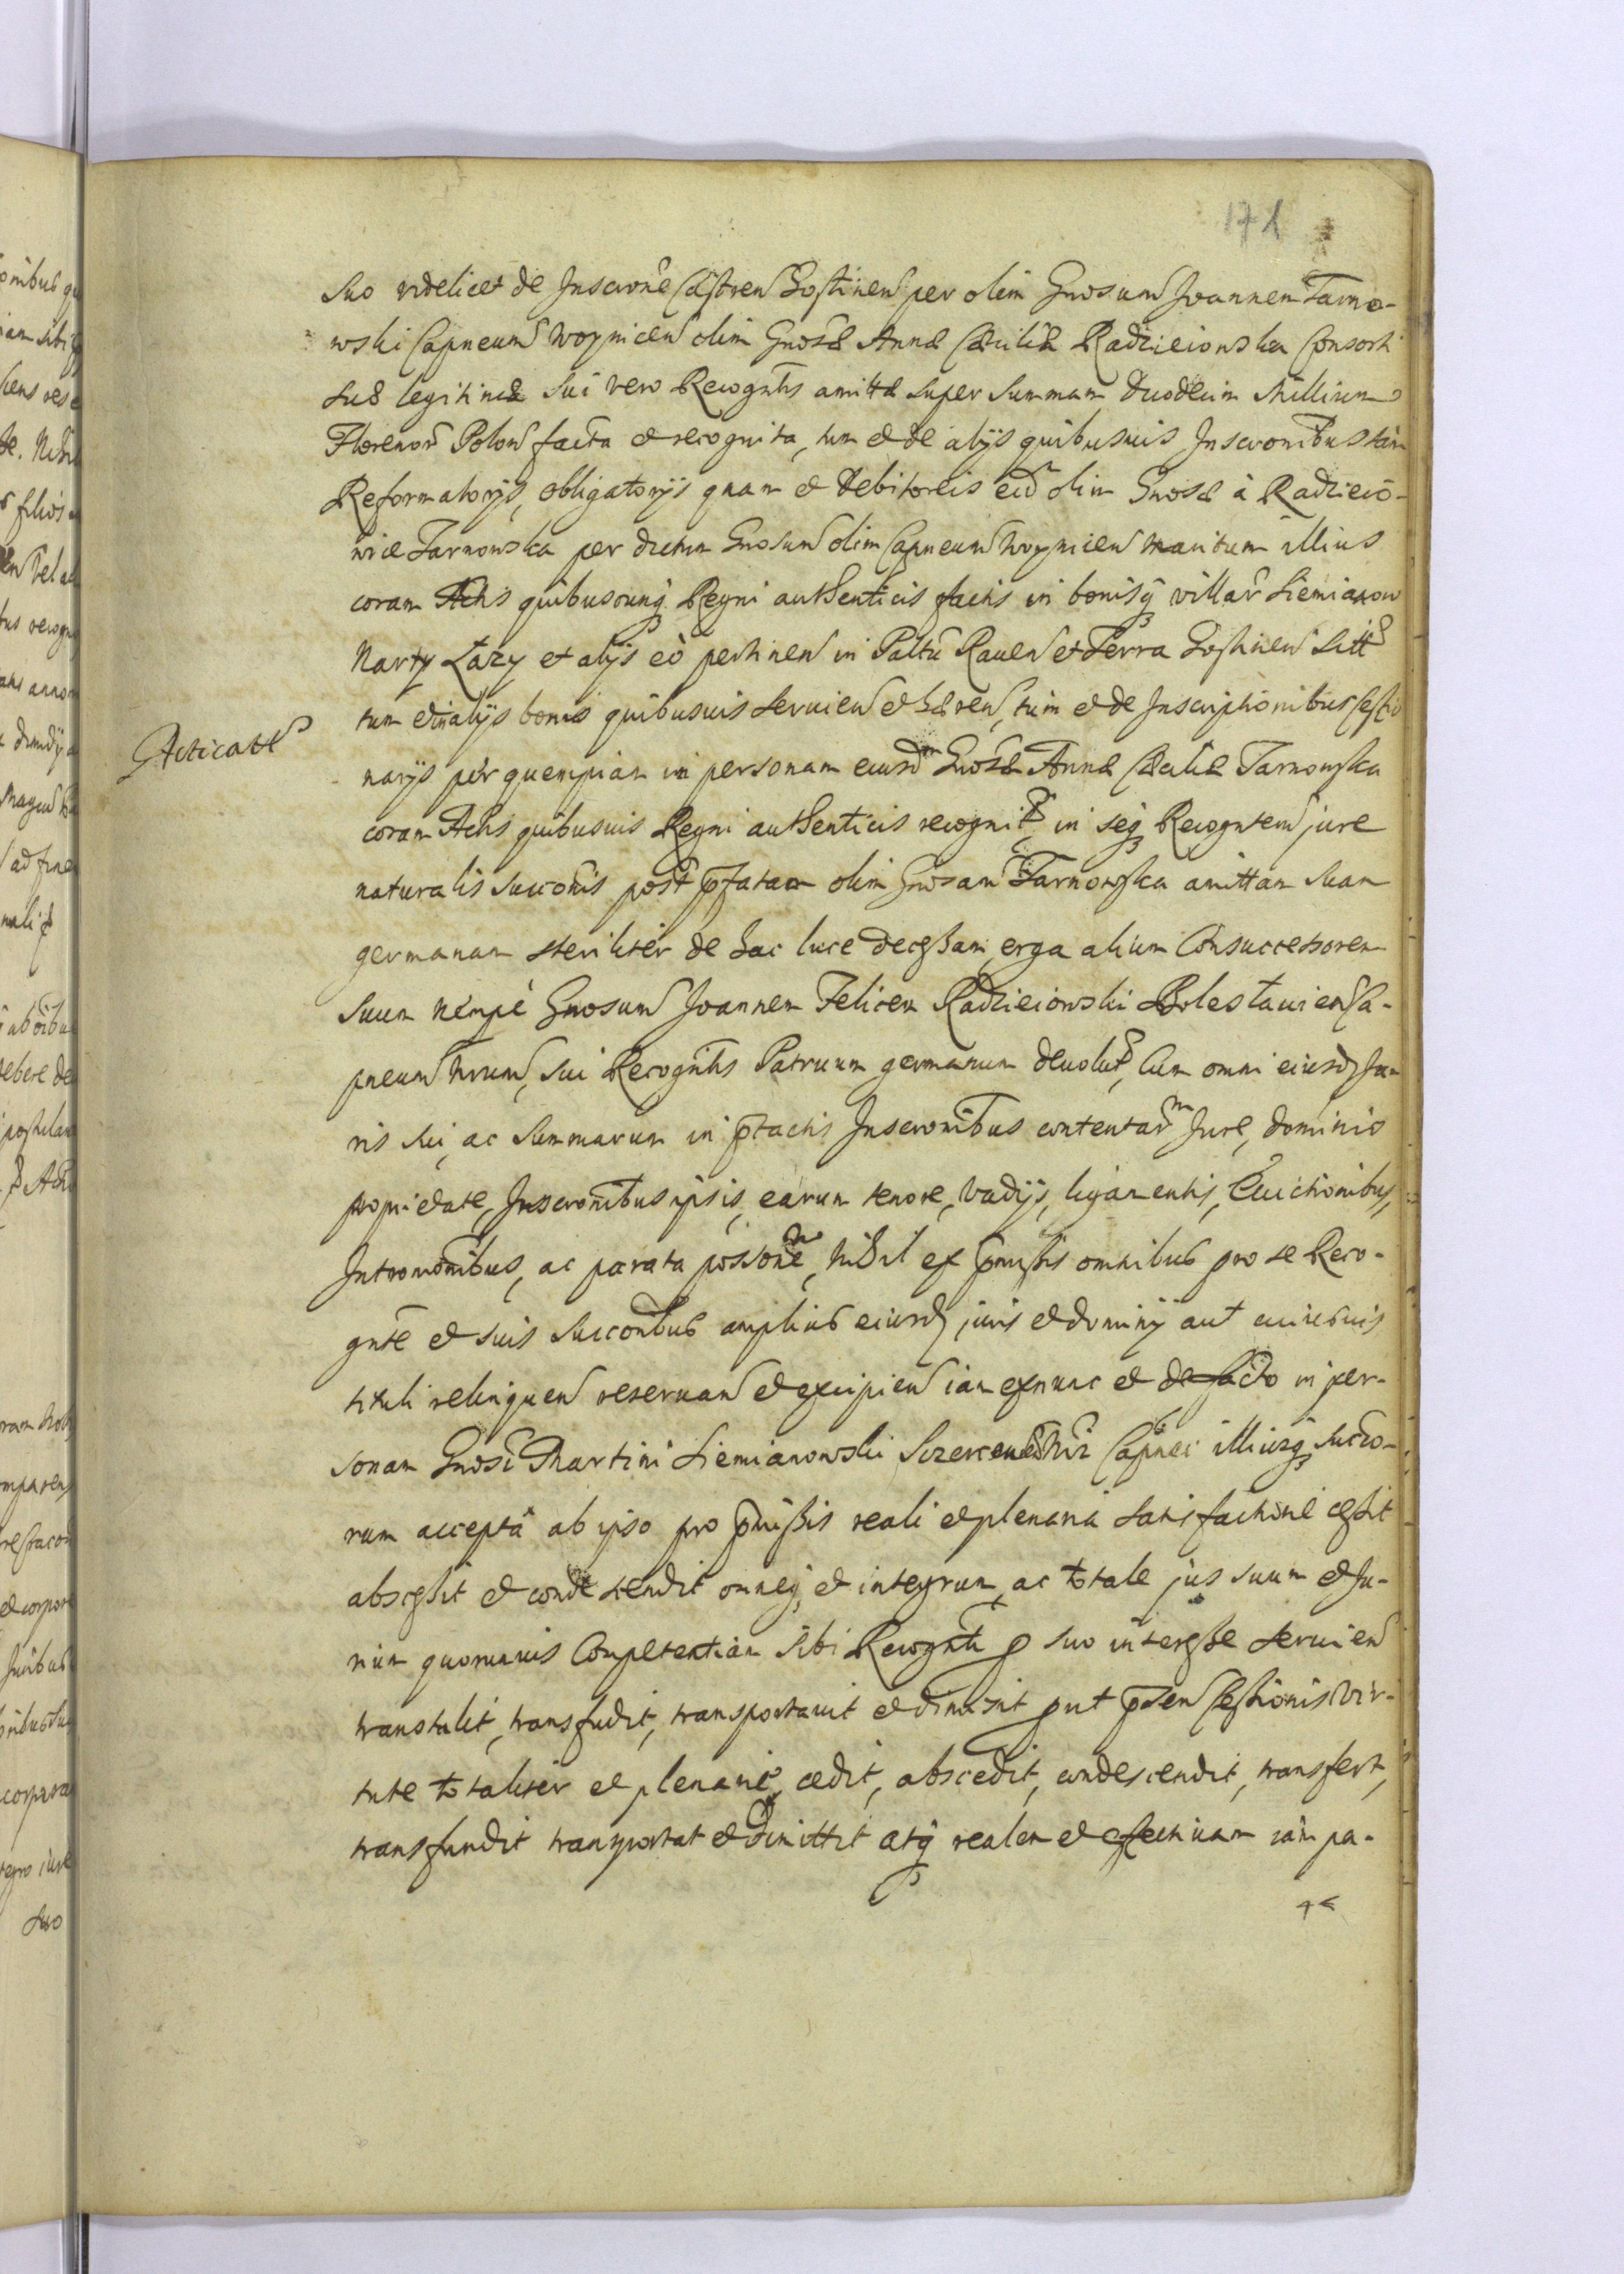 171
suo videlicet de Inscrone Castren Gostinen per olim Gnosum Joannem Tarno-
wski Capneum Woynicen olim Gnosæ Annæ Cæciliæ Radzieiowska Consorti
suæ legitimæ sui vero Recogntis amittæ super summam duodecim Millium
Florenor Polon facta et recognita, tum et de alijs quibusuis Inscronibus tàm
Reformatorijs, obligatorijs quam et debitoreis eid olim Gnosæ à Radzieio-
wice Tarnowska per dictum Gnosum olim Capneum Woynicen maritum illius
coram Actis quibuscunq Regni authenticis factis in bonisq villar Siemianow
Narty Łazy et alijs eò pertinen in Palttu Rauen et Terra Gostinen sitt
tum et in alijs bonis quibusuis seruien et hæren, tum et de Inscriptionibus Cessio
Acticatt
narijs pér quempiam in personam eiusdm Gnosæ Annæ Cæciliæ Tarnowska
coram Actis quibusuis Regni authenticis recognit in seq Recogntem jure
naturalis succonis post pfatam olim Gnosam Tarnowska amittam suam
germanam steriliter de hac luce decessam, erga alium Consuccessorem
suum nempè Gnosum Joannem Felicem Radzieiowski Bolestauien Ca-
pneum Nrum, sui Recogntis Patruum germanum deuolut, Cum omni eiusd Ju-
ris sui, ac summarum in ptactis Inscronibus contentarm Jure, dominio
proprietate, Inscronibus ipsis, earum tenore, vadijs, ligamentis, Euictionibus,
Intromonibus, ac parata possone, Nihil ex pmissis omnibus pro se Reco-
gnte et suis succoribus amplius eiusd juris et dominij aut cuiusuis
tituli relinquen reseruan et excipien iam exnunc et de facto in per-
sonam Gnosi Martini Siemianowski Nri Capnei illiusq succo-
rum acceptâ ab ipso pro pmissis reali et plenaria satisfactione cessit
abscessit et condescendit omneq et integrum, ac totale jus suum et Ju-
rium quorumuis Competentiam sibi Recognti p suo interesse seruien
transtulit, transfudit, transportauit et dimisit put psen Cessionis vir-
tute totaliter et plenariè cedit, abscedit, condescendit, transfert,
transfundit transportat et dimittit atq realem et effectiuam iàm pa-